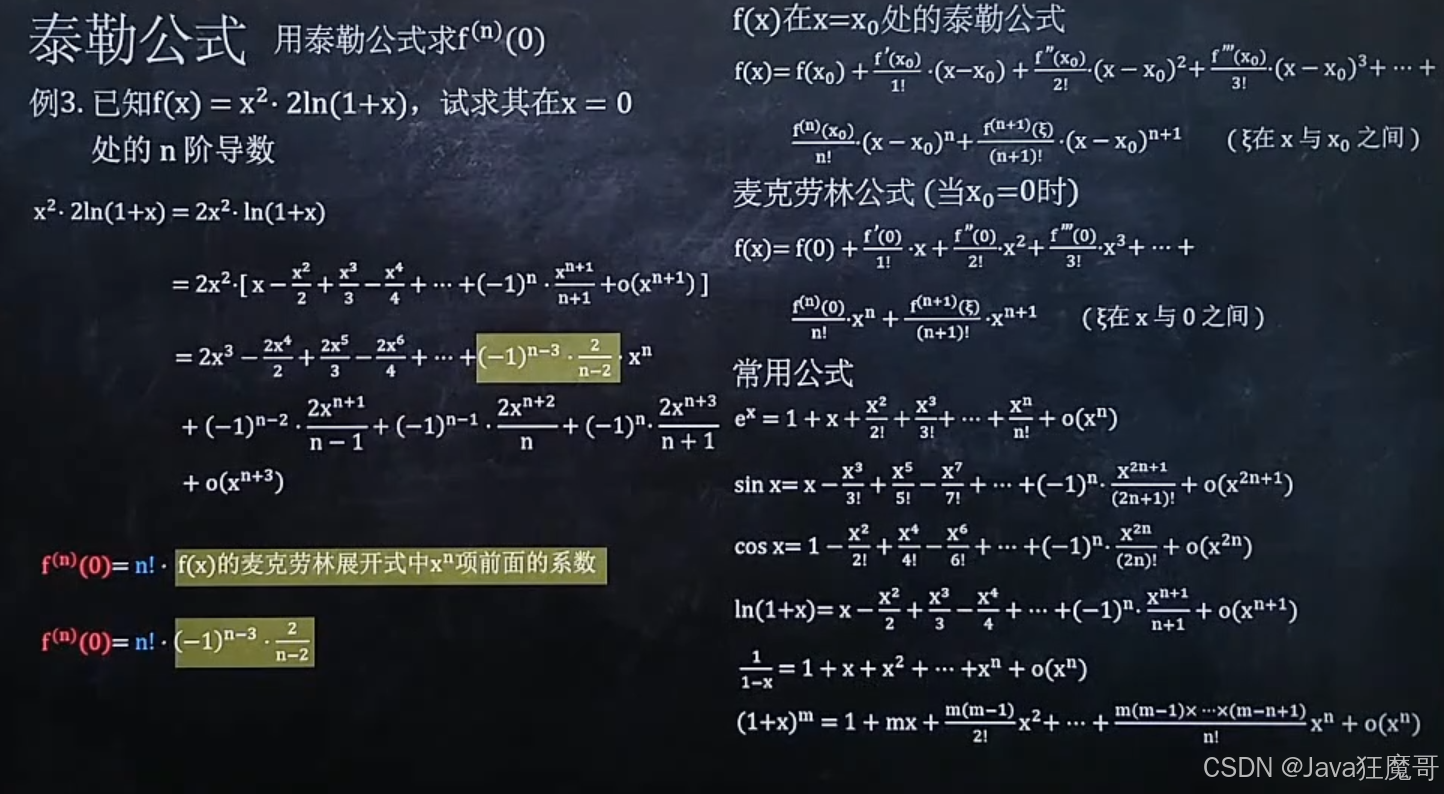 泰勒公式 用泰勒公式求f⁽ⁿ⁾(0)
例3. 已知f(x) = x²· 2ln(1+x)，试求其在x = 0
处的 n 阶导数
x²· 2ln(1+x) = 2x²· ln(1+x)
= 2x²·[ x − x²/2 + x³/3 − x⁴/4 + ··· +(−1)ⁿ · xⁿ⁺¹/(n+1) +o(xⁿ⁺¹) ]
= 2x³ − 2x⁴/2 + 2x⁵/3 − 2x⁶/4 + ··· +(−1)ⁿ⁻³ · 2/(n−2) · xⁿ
+ (−1)ⁿ⁻² · 2xⁿ⁺¹/(n − 1) + (−1)ⁿ⁻¹ · 2xⁿ⁺²/n + (−1)ⁿ· 2xⁿ⁺³/(n + 1)
+ o(xⁿ⁺³)
f⁽ⁿ⁾(0)= n! · f(x)的麦克劳林展开式中xⁿ项前面的系数
f⁽ⁿ⁾(0)= n! · (−1)ⁿ⁻³ · 2/(n−2)
f(x)在x=x₀处的泰勒公式
f(x)= f(x₀) + f′(x₀)/1! ·(x−x₀) + f″(x₀)/2! ·(x − x₀)² + f‴(x₀)/3! ·(x − x₀)³ + ··· +
f⁽ⁿ⁾(x₀)/n! ·(x − x₀)ⁿ + f⁽ⁿ⁺¹⁾(ξ)/(n+1)! ·(x − x₀)ⁿ⁺¹ ( ξ在 x 与 x₀ 之间 )
麦克劳林公式 (当x₀=0时)
f(x)= f(0) + f′(0)/1! ·x + f″(0)/2! ·x² + f‴(0)/3! ·x³ + ··· +
f⁽ⁿ⁾(0)/n! ·xⁿ + f⁽ⁿ⁺¹⁾(ξ)/(n+1)! ·xⁿ⁺¹ ( ξ在 x 与 0 之间 )
常用公式
eˣ = 1 + x + x²/2! + x³/3! + ··· + xⁿ/n! + o(xⁿ)
sin x= x − x³/3! + x⁵/5! − x⁷/7! + ··· +(−1)ⁿ· x²ⁿ⁺¹/(2n+1)! + o(x²ⁿ⁺¹)
cos x= 1 − x²/2! + x⁴/4! − x⁶/6! + ··· +(−1)ⁿ· x²ⁿ/(2n)! + o(x²ⁿ)
ln(1+x)= x − x²/2 + x³/3 − x⁴/4 + ··· +(−1)ⁿ· xⁿ⁺¹/(n+1) + o(xⁿ⁺¹)
1/(1−x) = 1 + x + x² + ··· +xⁿ + o(xⁿ)
(1+x)ᵐ = 1 + mx + m(m−1)/2! x² + ··· + m(m−1)× ···×(m−n+1)/n! xⁿ + o(xⁿ)
CSDN @Java狂魔哥